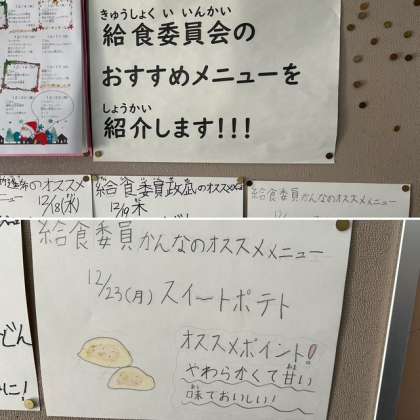 きゅうしょく い いんかい
給食委員会の
おすすめメニューを
しょうかい
紹介します!!!
のオススメ
ニュー
12/18(水)
給食委員政凪のオススメメニュー
12/19木
給食委員かんなのオススメメニュー
給食委員かんなのオススメメニュー
12/23(月) スイートポテト
オススメポイント!
やわらかくて甘い
味でおいしい!
どん
に!